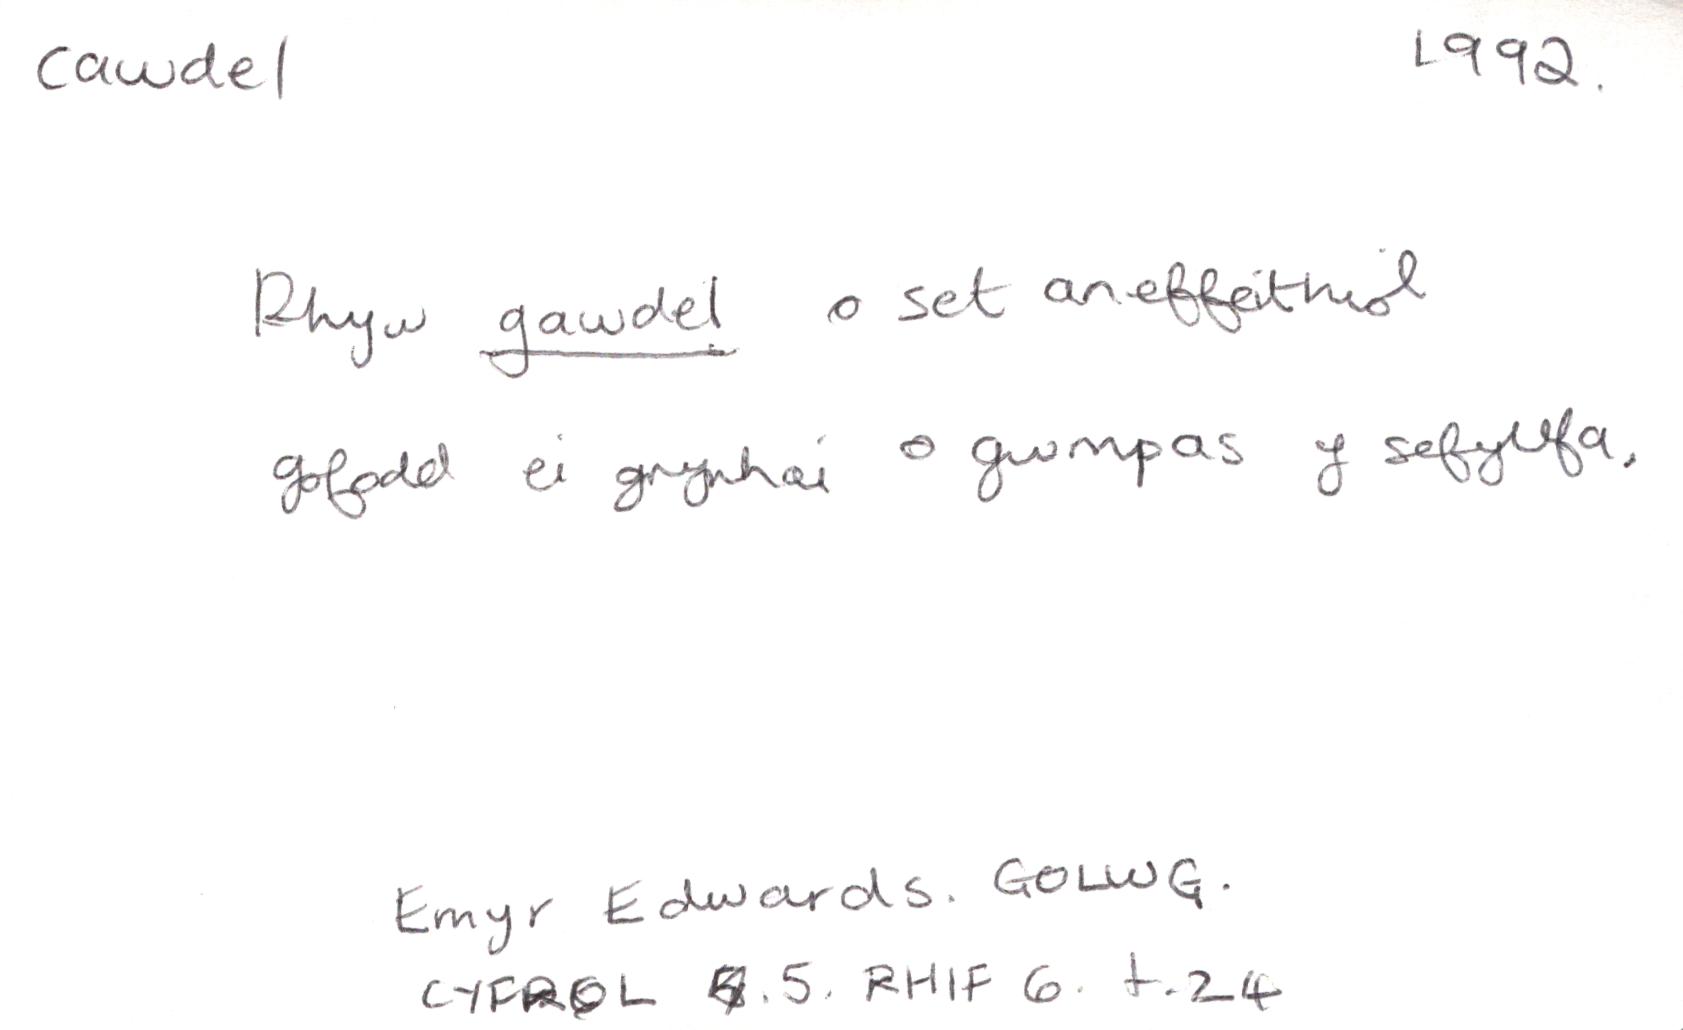 cawdel 1992.
Rhyw gawdel o set aneffeithiol
gofodd ei grynhoi o gwmpas y sefyllfa.
Emyr Edwards. GOLWG.
CYFROL 5. RHIF 6. t.24